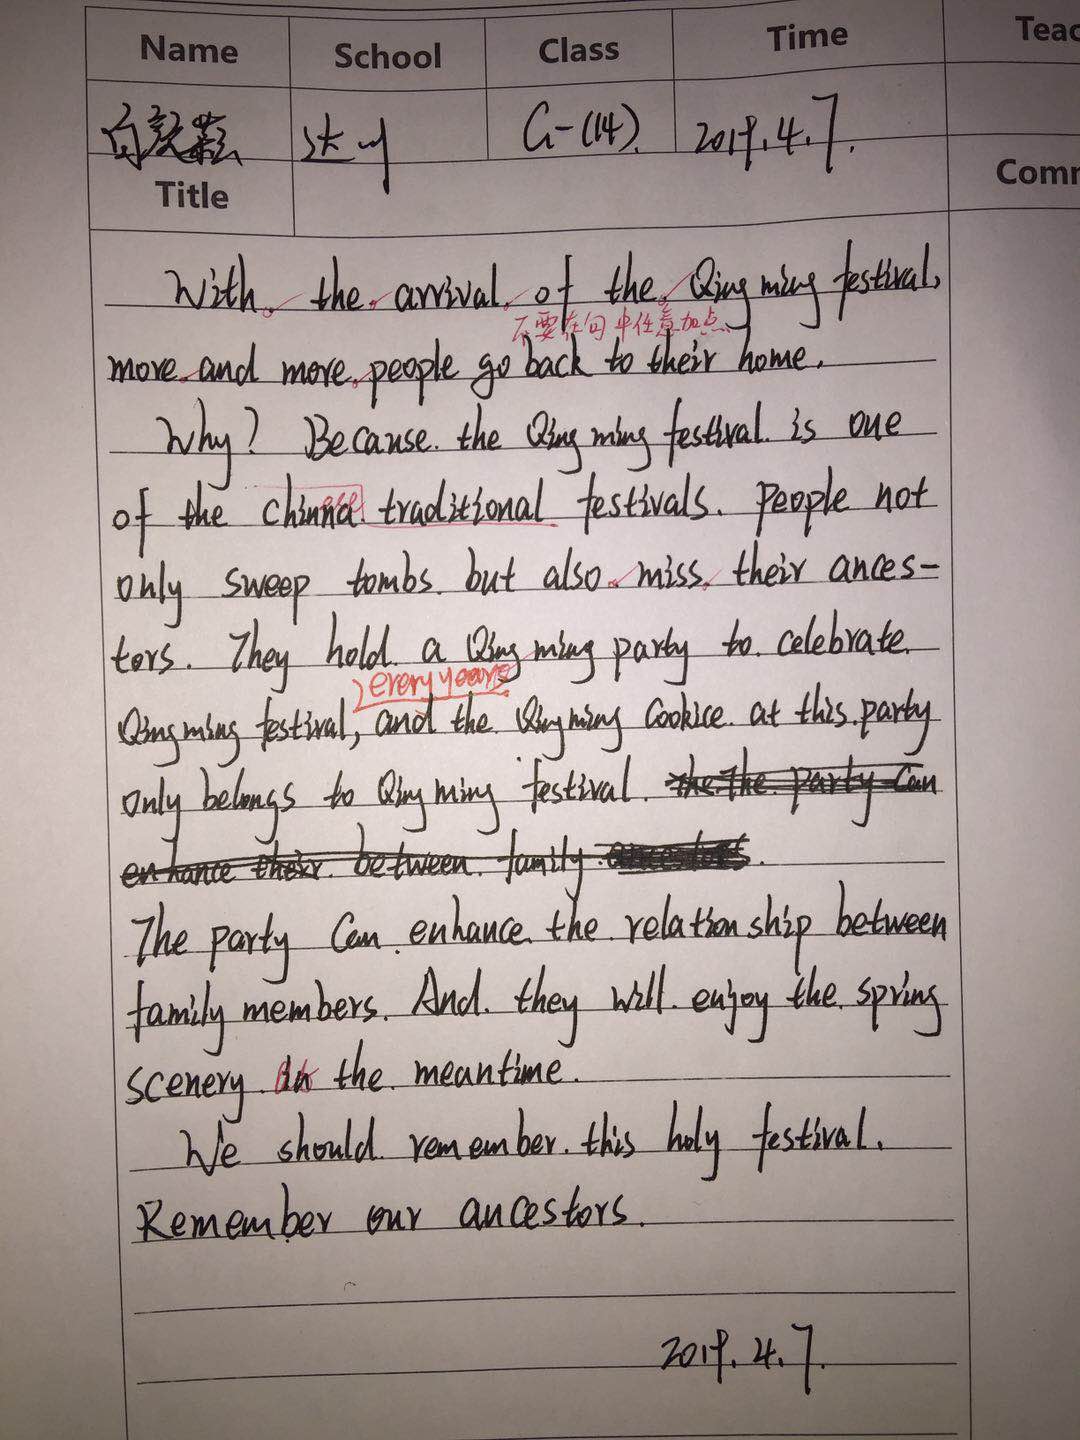 Name School Class Time Teac
白 G-(14). 2019.4.7.
Title Comm
With. the. arrival. of the. Qing ming festival,
不要在句中任意加点
more. and more. people go back to their home.
Why? Because. the Qing ming festival. is one
of the chinna. traditional festivals. people not
ese
only sweep tombs. but also. miss. their ances-
tors. They hold. a Qing ming party to. celebrate.
every years
Qingming festival, and the Qingming Cookice. at this. party
only belongs to Qing ming festival. the The. party Can
enhance their. between. family ancestors.
The party Can. enhance. the. relation ship between
family members. And. they will. enjoy the. spring
scenery. in the. meantime.
We should. remember. this holy festival.
Remember our ancestors.
2019.4.7.